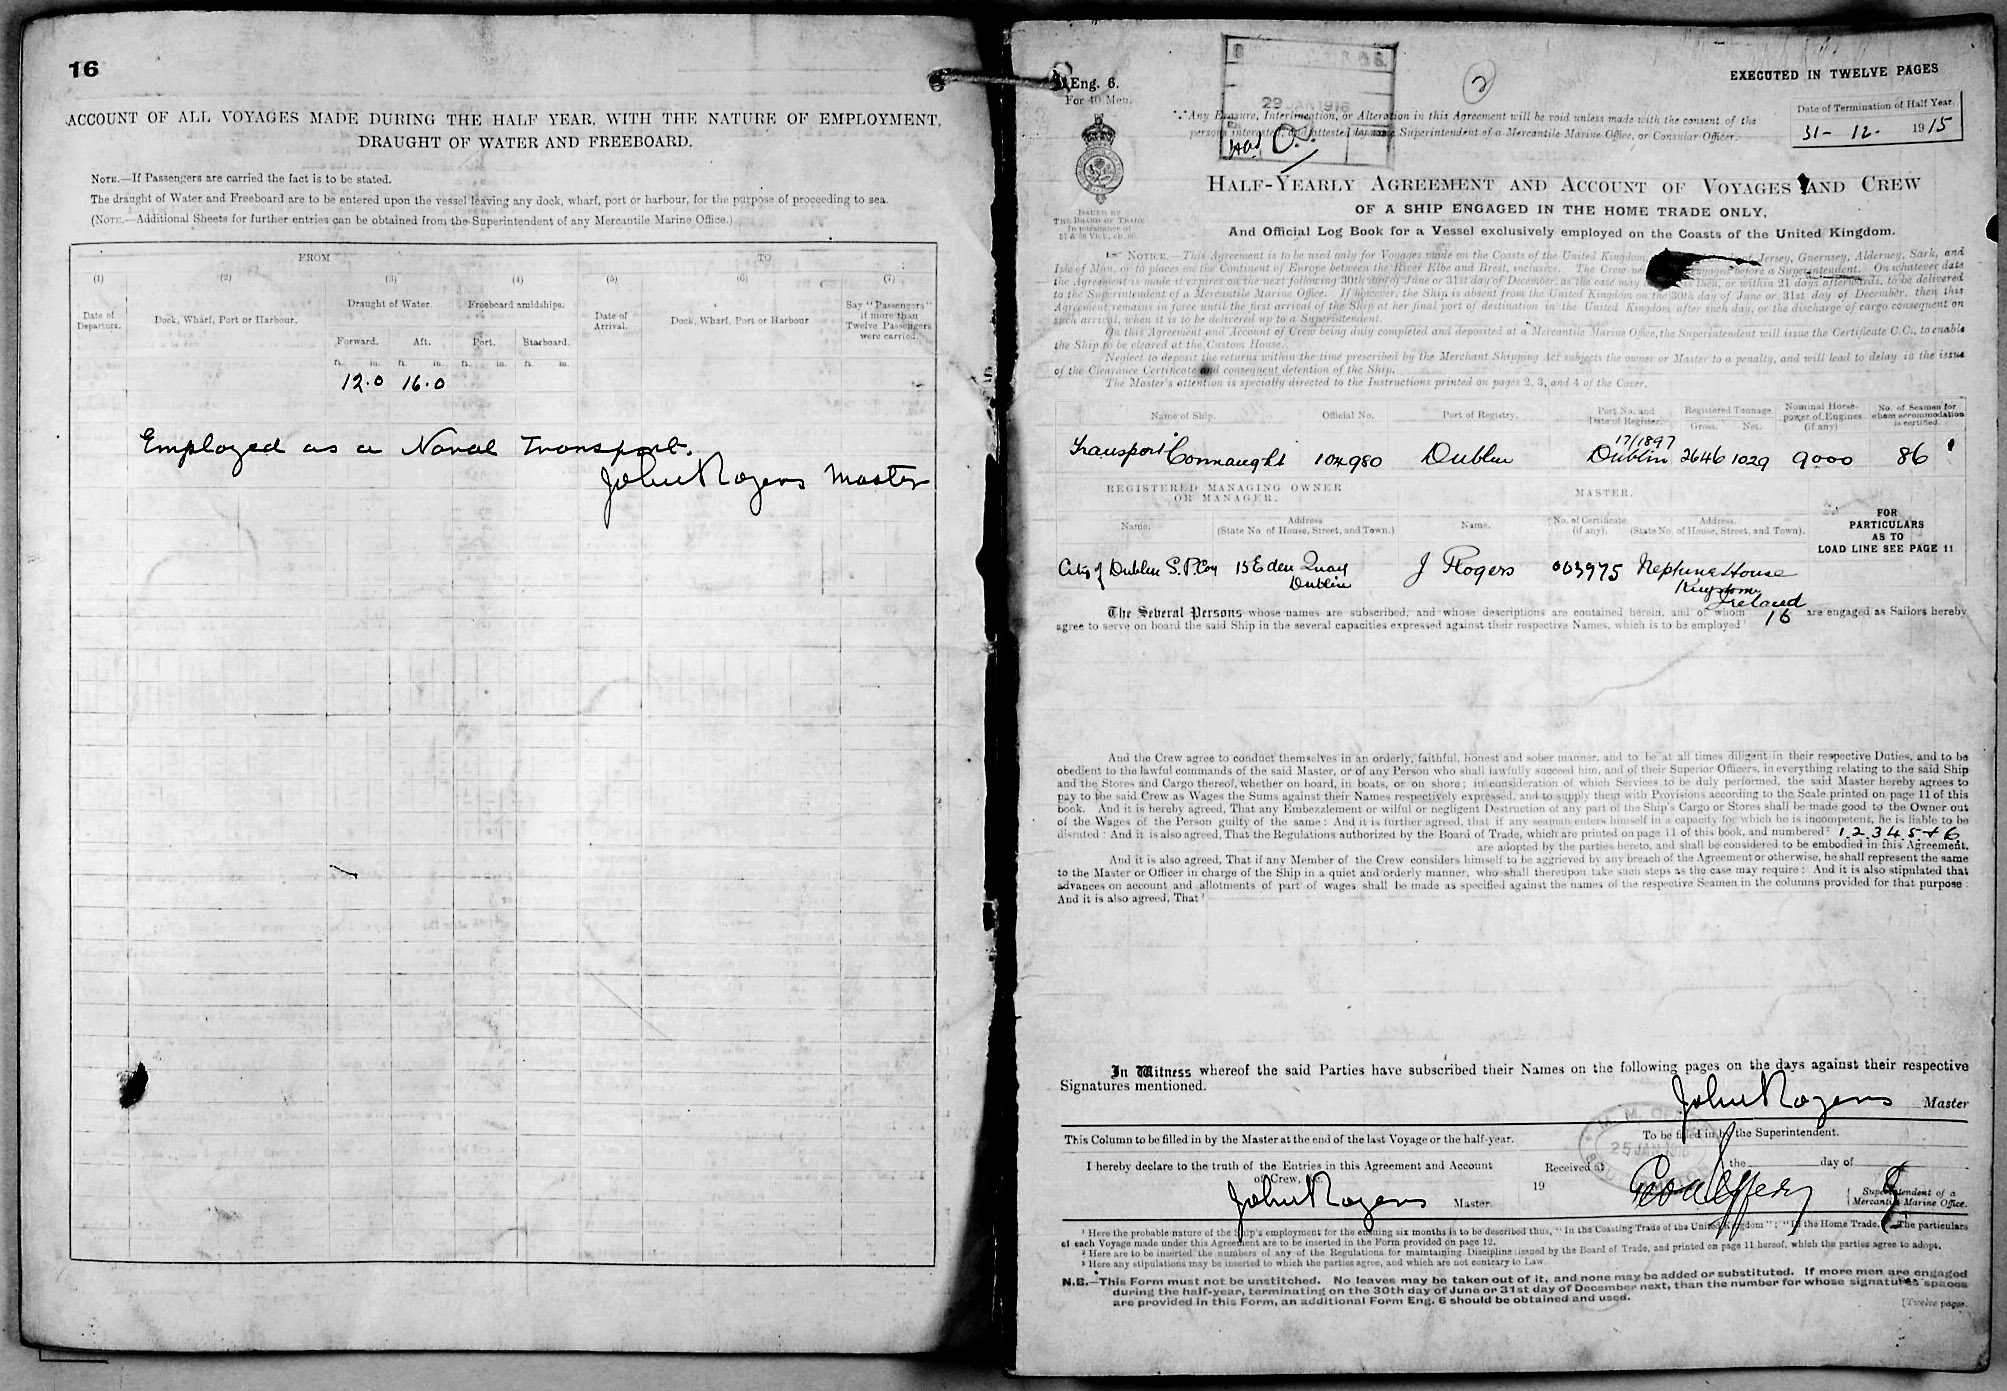 16
ACCOUNT OF ALL VOYAGES MADE DURING THE HALF YEAR, WITH THE NATURE OF EMPLOYMENT,
DRAUGHT OF WATER AND FREEBOARD.
NOTE.—If Passengers are carried the fact is to be stated.
The draught of Water and Freeboard are to be entered upon the vessel leaving any dock, wharf, port or harbour, for the purpose of proceeding to sea.
(NOTE.—Additional Sheets for further entries can be obtained from the Superintendent of any Mercantile Marine Office.)
FROM TO
(1) (2) (3) (4) (5) (6) (7)
Date of Departure. Dock, Wharf, Port or Harbour. Draught of Water. Freeboard amidships. Date of Arrival. Dock, Wharf, Port or Harbour Say "Passengers" if more than Twelve Passengers were carried.
Forward. Aft. Port. Starboard.
ft. in. ft. in. ft. in. ft. in.
12.0 16.0
Employed as a Naval Transport.
John Rogers Master
Eng. 6.
For 40 Men.
29 JAN 1916
2
EXECUTED IN TWELVE PAGES
Date of Termination of Half Year
31- 12. 1915
Any Erasure, Interlineation, or Alteration in this Agreement will be void unless made with the consent of the
persons interested and attested by some Superintendent of a Mercantile Marine Office, or Consular Officer.
ISSUED BY
THE BOARD OF TRADE
In pursuance of
HALF-YEARLY AGREEMENT AND ACCOUNT OF VOYAGES AND CREW
OF A SHIP ENGAGED IN THE HOME TRADE ONLY,
And Official Log Book for a Vessel exclusively employed on the Coasts of the United Kingdom.
NOTICE.—This Agreement is to be used only for Voyages made on the Coasts of the United Kingdom of Jersey, Guernsey, Alderney, Sark, and
Isle of Man, or to places on the Continent of Europe between the River Elbe and Brest, inclusive. The Crew engaged before a Superintendent. On whatever date
the Agreement is made it expires on the next following 30th day of June or 31st day of December, as the case may then, or within 21 days afterwards, to be delivered
to the Superintendent of a Mercantile Marine Office. If however, the Ship is absent from the United Kingdom on the 30th day of June or 31st day of December, then this
Agreement remains in force until the first arrival of the Ship at her final port of destination in the United Kingdom after such day, or the discharge of cargo consequent on
such arrival, when it is to be delivered up to a Superintendent.
On this Agreement and Account of Crew being duly completed and deposited at a Mercantile Marine Office, the Superintendent will issue the Certificate C.C., to enable
the Ship to be cleared at the Custom House.
Neglect to deposit the returns within the time prescribed by the Merchant Shipping Act subjects the owner or Master to a penalty, and will lead to delay in the issue
of the Clearance Certificate and consequent detention of the Ship.
The Master's attention is specially directed to the Instructions printed on pages 2, 3, and 4 of the Cover.
Name of Ship. Official No. Port of Registry. Port No. and Date of Register. Registered Tonnage. Gross. Net. Nominal Horse-power of Engines (if any) No. of Seamen for whom accommodation is certified.
17/1897
Transport "Connaught 104980 Dublin Dublin 2646 1029 9000 86
REGISTERED MANAGING OWNER
OR MANAGER.
MASTER.
Name. Address (State No. of House, Street, and Town.) Name. No. of Certificate (if any). Address. (State No. of House, Street, and Town).
FOR
PARTICULARS
AS TO
LOAD LINE SEE PAGE 11
City of Dublin S.P.Coy 15 Eden Quay J Rogers 003975 Neptune House
Dublin Kingstown
Ireland
The Several Persons whose names are subscribed, and whose descriptions are contained herein, and of whom 16 are engaged as Sailors hereby
agree to serve on board the said Ship in the several capacities expressed against their respective Names, which is to be employed¹
And the Crew agree to conduct themselves in an orderly, faithful, honest and sober manner, and to be at all times diligent in their respective Duties, and to be
obedient to the lawful commands of the said Master, or of any Person who shall lawfully succeed him, and of their Superior Officers, in everything relating to the said Ship
and the Stores and Cargo thereof, whether on board, in boats, or on shore; in consideration of which Services to be duly performed, the said Master hereby agrees to
pay to the said Crew as Wages the Sums against their Names respectively expressed, and to supply them with Provisions according to the Scale printed on page 11 of this
book. And it is hereby agreed, That any Embezzlement or wilful or negligent Destruction of any part of the Ship's Cargo or Stores shall be made good to the Owner out
of the Wages of the Person guilty of the same: And it is further agreed, that if any seaman enters himself in a capacity for which he is incompetent, he is liable to be
disrated: And it is also agreed, That the Regulations authorized by the Board of Trade, which are printed on page 11 of this book, and numbered² 1 2 3 4 5 + 6
are adopted by the parties hereto, and shall be considered to be embodied in this Agreement.
And it is also agreed, That if any Member of the Crew considers himself to be aggrieved by any breach of the Agreement or otherwise, he shall represent the same
to the Master or Officer in charge of the Ship in a quiet and orderly manner, who shall thereupon take such steps as the case may require: And it is also stipulated that
advances on account and allotments of part of wages shall be made as specified against the names of the respective Seamen in the columns provided for that purpose:
And it is also agreed, That³
In Witness whereof the said Parties have subscribed their Names on the following pages on the days against their respective
Signatures mentioned.
John Rogers Master
This Column to be filled in by the Master at the end of the last Voyage or the half-year.
To be filled in by the Superintendent.
I hereby declare to the truth of the Entries in this Agreement and Account
of Crew, &c.
John Rogers Master.
Received at the day of
19
Superintendent of a
Mercantile Marine Office.
M. M. OFFICE
25 JAN 1916
¹ Here the probable nature of the Ship's employment for the ensuing six months is to be described thus, "In the Coasting Trade of the United Kingdom"; "In the Home Trade." The particulars
of each Voyage made under this Agreement are to be inserted in the Form provided on page 12.
² Here are to be inserted the numbers of any of the Regulations for maintaining Discipline issued by the Board of Trade, and printed on page 11 hereof, which the parties agree to adopt.
³ Here any stipulations may be inserted to which the parties agree, and which are not contrary to Law
N.B.—This Form must not be unstitched. No leaves may be taken out of it, and none may be added or substituted. If more men are engaged
during the half-year, terminating on the 30th day of June or 31st day of December next, than the number for whose signatures spaces
are provided in this Form, an additional Form Eng. 6 should be obtained and used.
[Twelve pages.